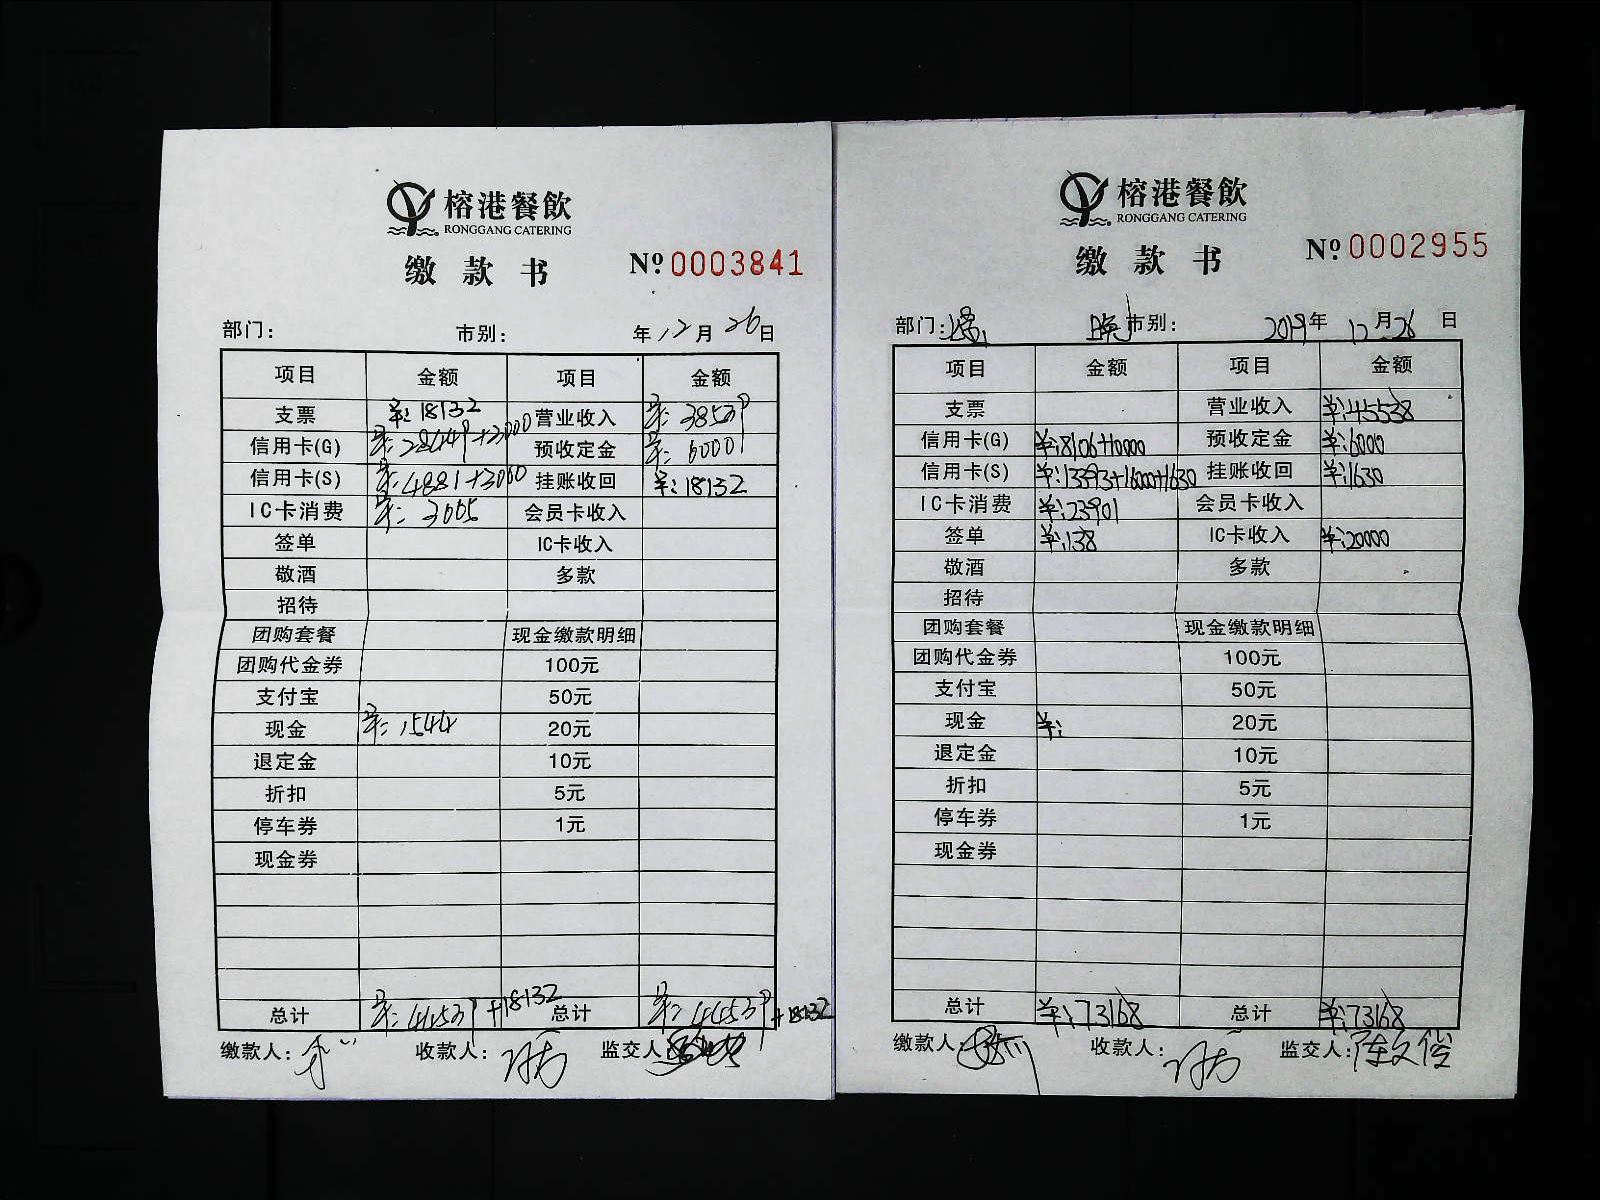 榕港餐飲
RONGGANG CATERING
缴款书 № 0003841
部门： 市别： 年 12 月 26 日
项目 金额 项目 金额
支票 ¥:18132 营业收入 ¥:38539
信用卡(G) 预收定金
信用卡(S) ¥:4881+3000 挂账收回 ¥:18132
IC卡消费 会员卡收入
签单 IC卡收入
敬酒 多款
招待
团购套餐 现金缴款明细
团购代金券 100元
支付宝 50元
现金 ¥:1544 20元
退定金 10元
折扣 5元
停车券 1元
现金券
总计 ¥:44539+18132 总计 ¥:44539+18132
缴款人： 收款人： 监交人：
榕港餐飲
RONGGANG CATERING
缴款书 № 0002955
部门： 市别： 2019年 12月26日
项目 金额 项目 金额
支票 营业收入 ¥:45538
信用卡(G) ¥:8106+10000 预收定金 ¥:6000
信用卡(S) ¥:13393+16000+1630 挂账收回 ¥:1630
IC卡消费 ¥:23901 会员卡收入
签单 ¥:138 IC卡收入 ¥:20000
敬酒 多款
招待
团购套餐 现金缴款明细
团购代金券 100元
支付宝 50元
现金 ¥: 20元
退定金 10元
折扣 5元
停车券 1元
现金券
总计 ¥:73168 总计 ¥:73168
缴款人： 收款人： 监交人：陈文俊